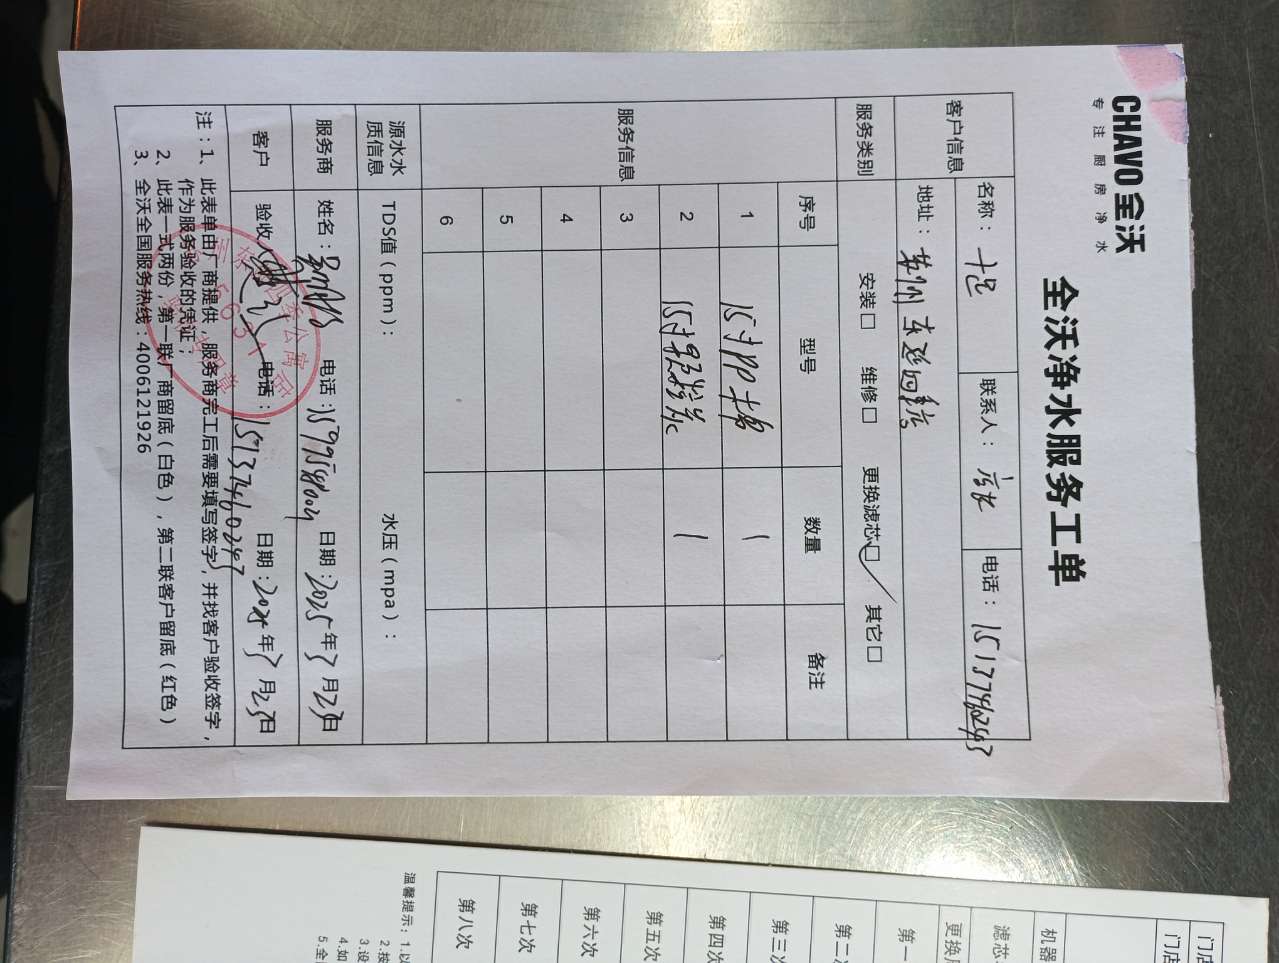 CHAVO全沃
专注厨房净水
全沃净水服务工单
客户信息 名称： 联系人： 电话：15137460293
地址：
服务类别 安装□ 维修□ 更换滤芯□✓ 其它□
服务信息 序号 型号 数量 备注
1 15寸PP棉 1
2 15寸 1
3
4
5
6
源水水质信息 TDS值（ppm）： 水压（mpa）：
服务商 姓名： 电话： 日期：2025年3月23日
客户 验收： 电话：15137460293 日期：2025年3月23日
注：1、此表单由厂商提供，服务商完工后需要填写签字，并找客户验收签字，
作为服务验收的凭证；
2、此表一式两份，第一联厂商留底（白色），第二联客户留底（红色）
3、全沃全国服务热线：4006121926
5631
门店
门店
机器
滤芯
更换
第一
第二
第三次
第四次
第五次
第六次
第七次
第八次
温馨提示：1.以
2.按
3.设
4.如
5.全